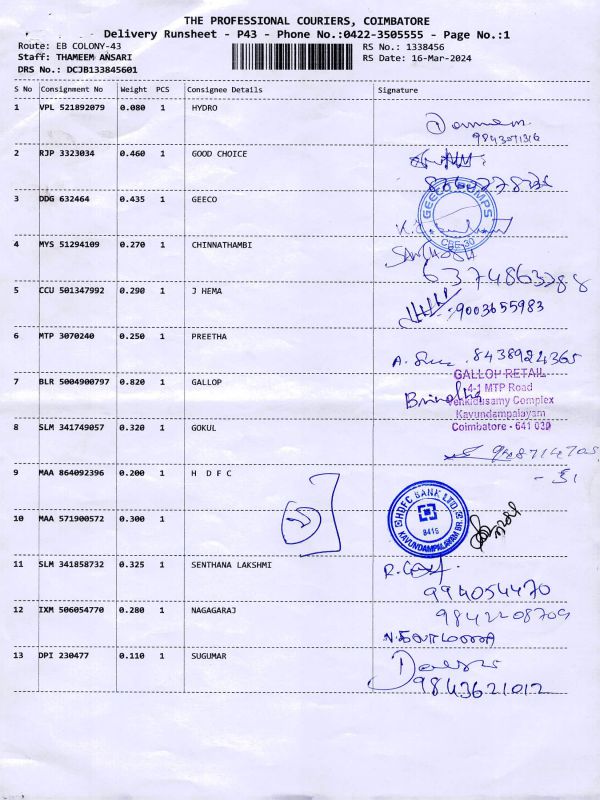 THE PROFESSIONAL COURIERS, COIMBATORE
Delivery Runsheet - P43 - Phone No.:0422-3505555 - Page No.:1
Route: EB COLONY-43 RS No.: 1338456
Staff: THAMEEM ANSARI RS Date: 16-Mar-2024
DRS No.: DCJB133845601
S No Consignment No Weight PCS Consignee Details Signature
1 VPL 521892079 0.080 1 HYDRO
2 RJP 3323034 0.460 1 GOOD CHOICE
3 DDG 632464 0.435 1 GEECO
GEECO PUMPS
CBE-30
4 MYS 51294109 0.270 1 CHINNATHAMBI
SANTHOSH
6374863288
5 CCU 501347992 0.290 1 J HEMA
9003655983
6 MTP 3070240 0.250 1 PREETHA
8438924365
7 BLR 5004900797 0.820 1 GALLOP
GALLOP RETAIL
4-1 MTP Road
Venkidusamy Complex
Kavundampalayam
Coimbatore - 641 030
8 SLM 341749057 0.320 1 GOKUL
9 MAA 864092396 0.200 1 H D F C
HDFC BANK LTD.
8415
KAVUNDAMPALAYAM BR.
10 MAA 571900572 0.300 1
11 SLM 341858732 0.325 1 SENTHANA LAKSHMI
994054470
12 IXM 506054770 0.280 1 NAGAGARAJ
9842208709
13 DPI 230477 0.110 1 SUGUMAR
9843621012